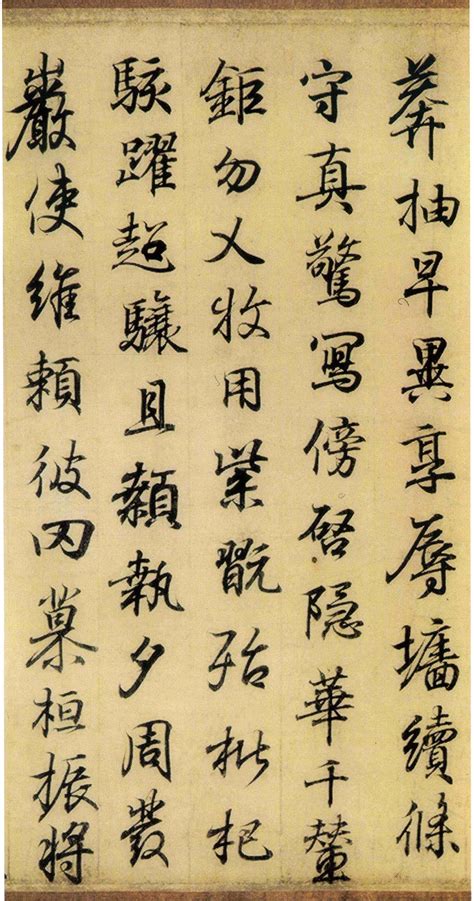 莽抽早異享辱墻續條
守真驚寫傍啓隱華千輦
鉅勿乂牧用紫翫殆枇杷
駭躍超驤且顙執夕周發
巖使維賴彼罔慕桓振將